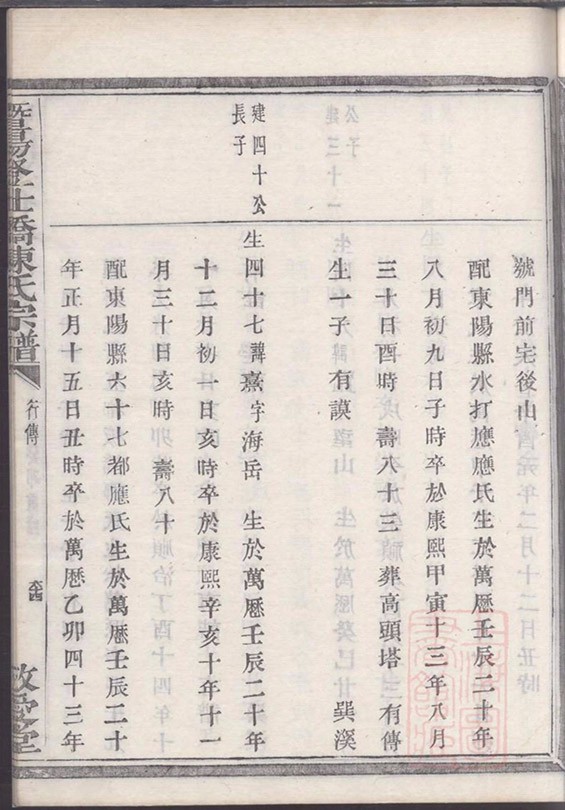 號門前宅後山
配東陽縣水打應應氏生於萬歷壬辰二十年
八月初九日子時卒於康熙甲寅十三年八月
三十日酉時 壽八十三 葬高頭塔三有傳
生一子有謨 巽溪
建四十公
長子
生四十七諱熹字海岳 生於萬歷壬辰二十年
十二月初一日亥時卒於康熙辛亥十年十一
月三十日亥時 壽八十
配東陽縣六十七都應氏生於萬歷壬辰二十
年正月十五日丑時卒於萬歷乙卯四十三年
暨陽 橋陳氏宗譜
行傳
敬愛堂